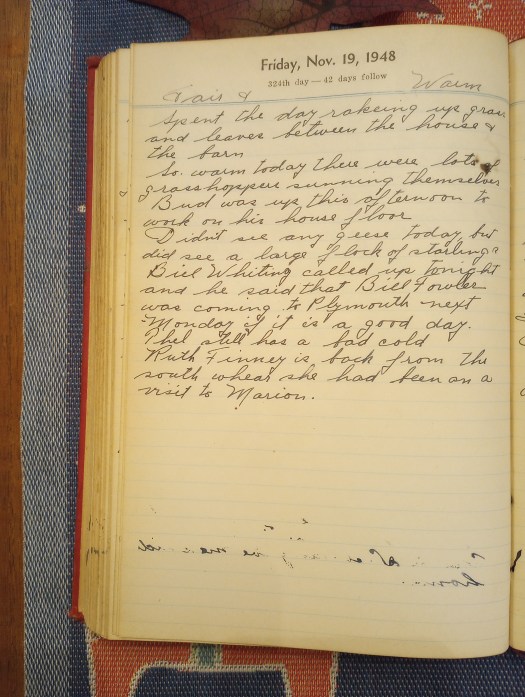 Friday, Nov. 19, 1948
324th day — 42 days follow
Fair & Warm
Spent the day rakeing up grass
and leaves between the house &
the barn
So warm today there were lots of
grasshoppers sunning themselves
Bud was up this afternoon to
work on his house floor
Didn't see any geese today but
did see a large flock of starlings
Bill Whiting called up tonight
and he said that Bill Fowler
was coming to Plymouth next
Monday if it is a good day.
Thel still has a bad cold
Ruth Finney is back from the
south whear she had been on a
visit to Marion.